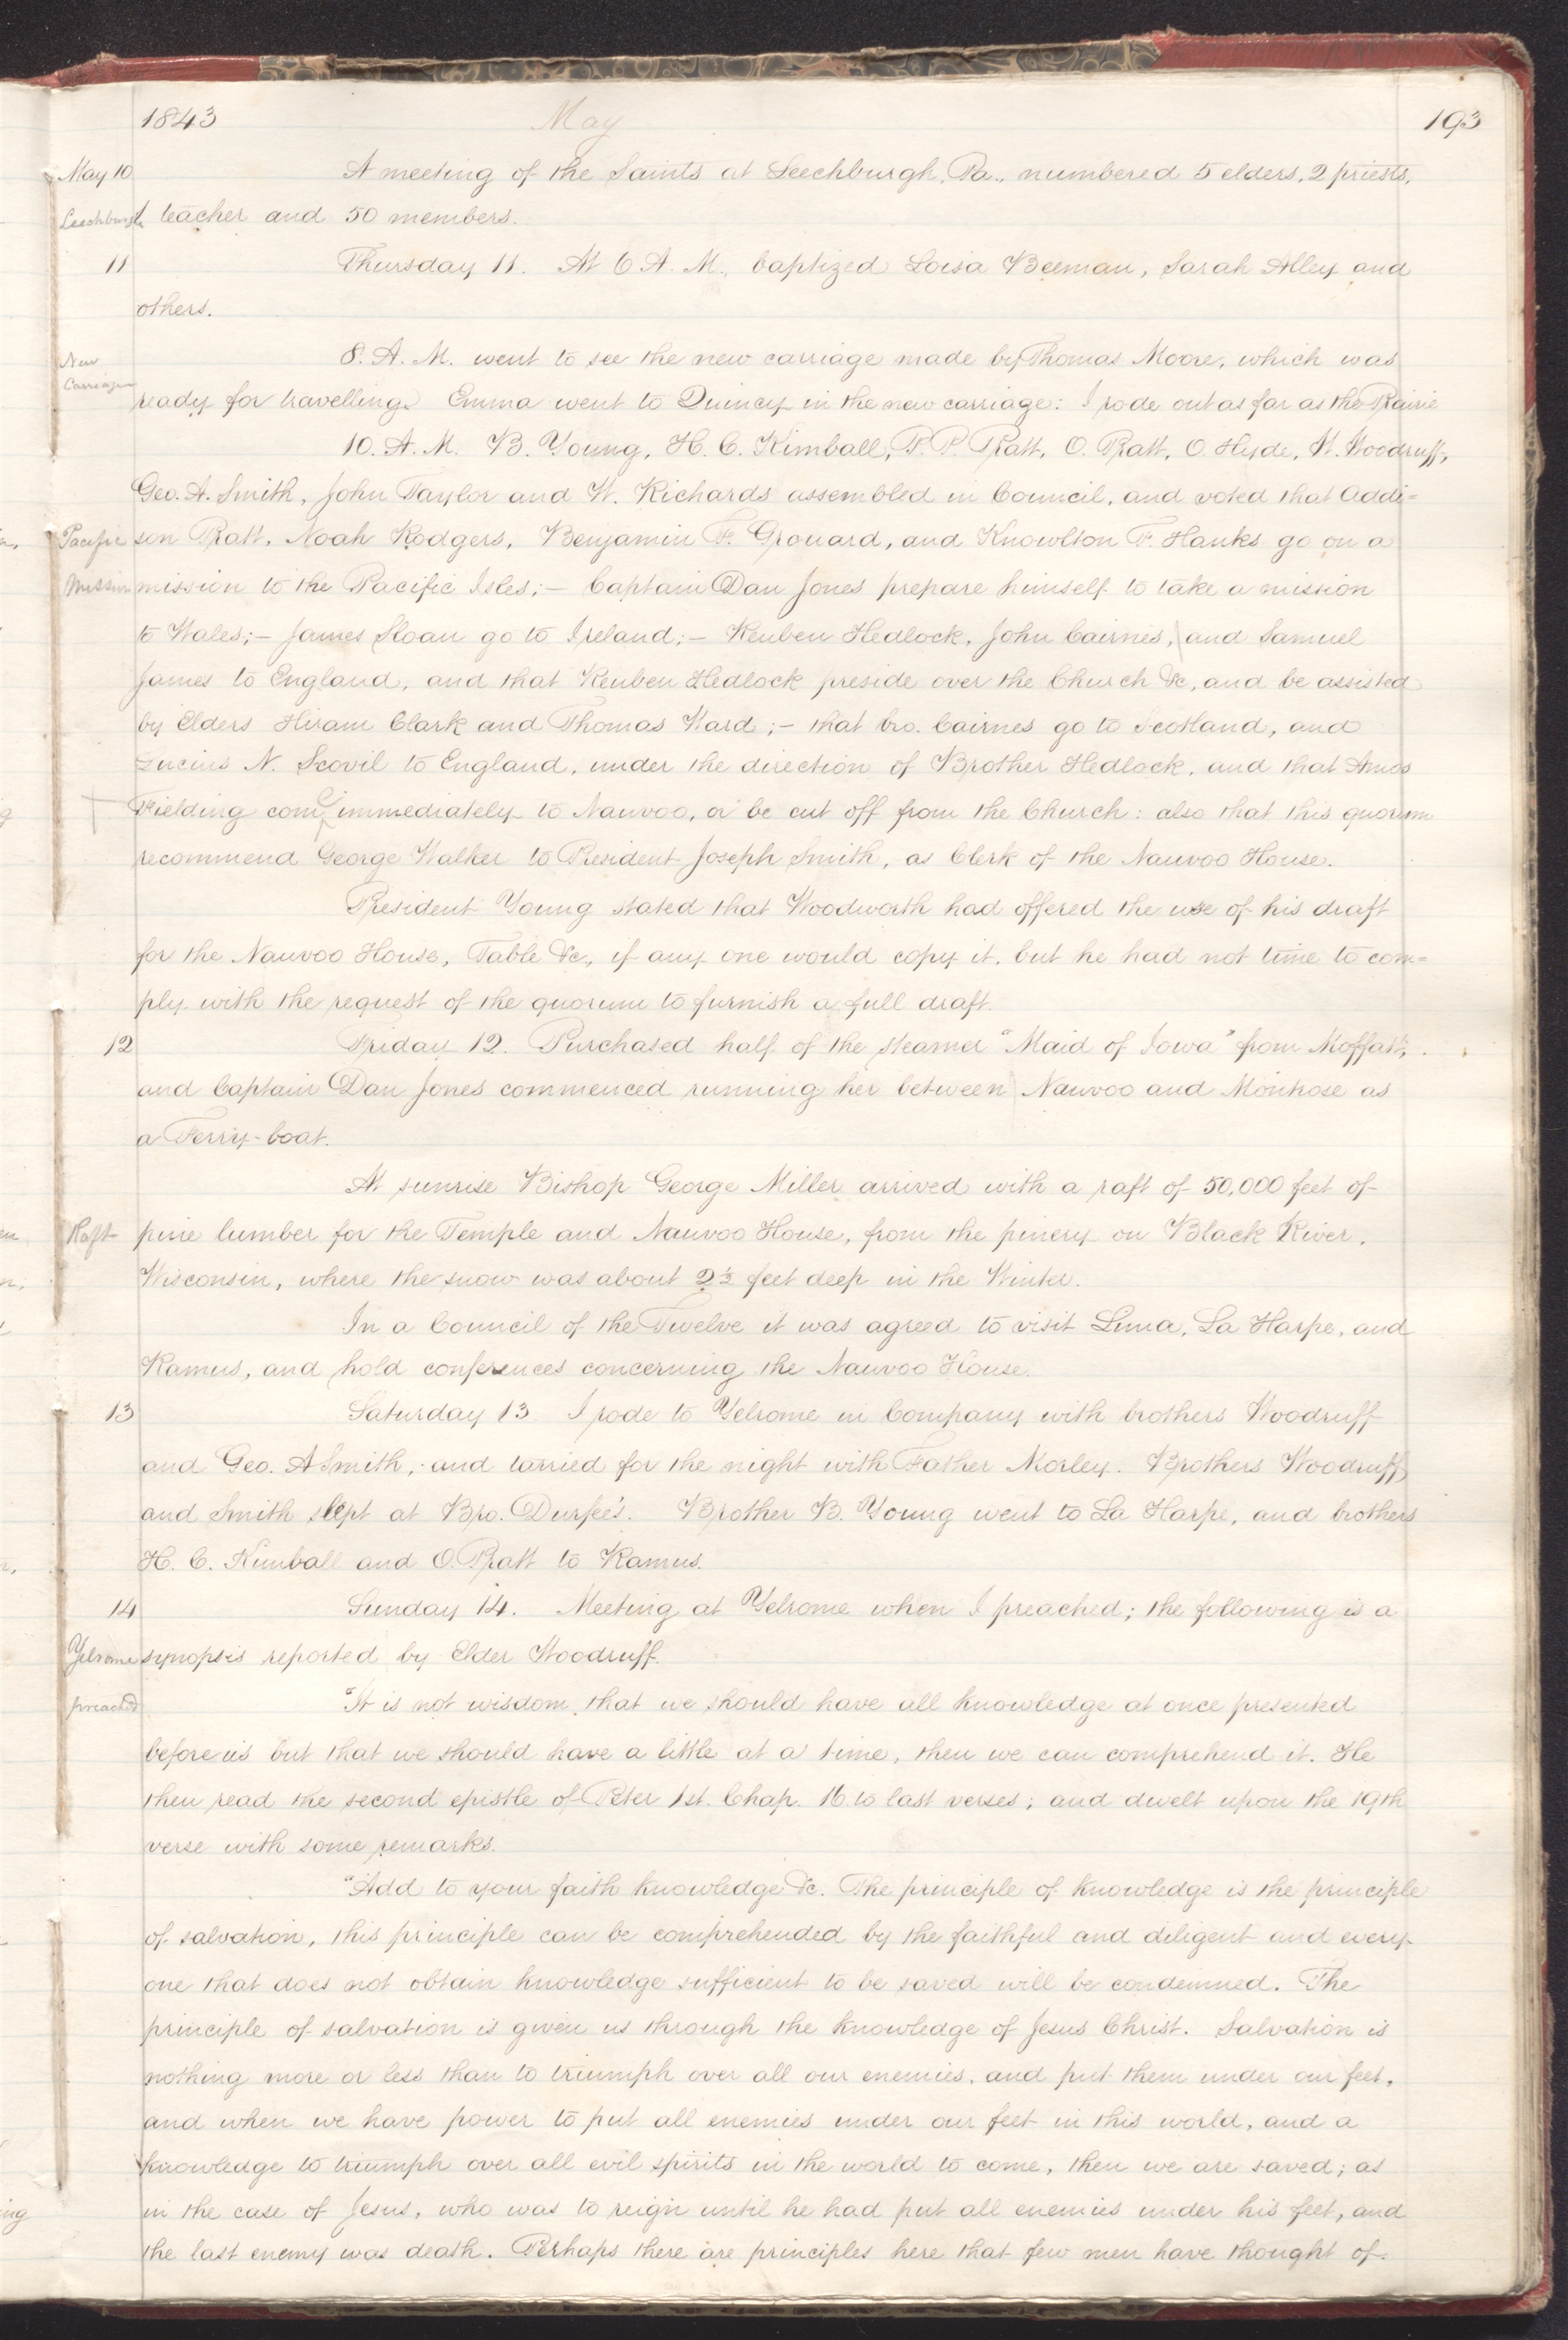 1843 May 193
May 10 A meeting of the Saints at Leechburgh, Pa., numbered 5 elders, 2 priests,
Leechburgh 1 teacher and 50 members.
11 Thursday 11. At 6 A. M., baptized Loisa Beeman, Sarah Alley and
others.
New 8. A. M. went to see the new carriage made by Thomas Moore, which was
Carriage
ready for travelling. Emma went to Quincy in the new carriage: I rode out as far as the Prairie
10. A. M. B. Young, H. C. Kimball, P. P. Pratt, O. Pratt, O. Hyde, W. Woodruff,
Geo. A. Smith, John Taylor and W. Richards assembled in Council, and voted that Addi=
Pacific son Pratt, Noah Rodgers, Benjamin F. Grouard, and Knowlton F. Hanks go on a
Mission mission to the Pacific Isles;— Captain Dan Jones prepare himself to take a mission
to Wales;— James Sloan go to Ireland;— Reuben Hedlock, John Cairnes, and Samuel
James to England, and that Reuben Hedlock preside over the Church &c, and be assisted
by Elders Hiram Clark and Thomas Ward;— that bro. Cairnes go to Scotland, and
Lucius N. Scovil to England, under the direction of Brother Hedlock, and that Amos
Fielding come immediately to Nauvoo, or be cut off from the Church: also that this quorum
recommend George Walker to President Joseph Smith, as Clerk of the Nauvoo House.
President Young stated that Woodworth had offered the use of his draft
for the Nauvoo House, Table &c, if any one would copy it, but he had not time to com=
ply with the request of the quorum to furnish a full draft.
12 Friday 12. Purchased half of the steamer "Maid of Iowa" from Moffatt,
and Captain Dan Jones commenced running her between Nauvoo and Montrose as
a Ferry-boat.
At sunrise Bishop George Miller arrived with a raft of 50,000 feet of
Raft pine lumber for the Temple and Nauvoo House, from the pinery on Black River,
Wisconsin, where the snow was about 2½ feet deep in the Winter.
In a Council of the Twelve it was agreed to visit Lima, La Harpe, and
Ramus, and hold conferences concerning the Nauvoo House.
13 Saturday 13 I rode to Yelrome in Company with brothers Woodruff
and Geo. A Smith, and tarried for the night with Father Morley. Brothers Woodruff
and Smith slept at Bro. Durfee's. Brother B. Young went to La Harpe, and brothers
H. C. Kimball and O. Pratt to Ramus.
14 Sunday 14. Meeting at Yelrome when I preached; the following is a
Yelrome synopsis reported by Elder Woodruff.
preached "It is not wisdom that we should have all knowledge at once presented
before us but that we should have a little at a time, then we can comprehend it. He
then read the second epistle of Peter 1st. Chap. 16 to last verses; and dwelt upon the 19th
verse with some remarks.
"Add to your faith knowledge &c. The principle of knowledge is the principle
of salvation, this principle can be comprehended by the faithful and diligent and every
one that does not obtain knowledge sufficient to be saved will be condemned. The
principle of salvation is given us through the knowledge of Jesus Christ. Salvation is
nothing more or less than to triumph over all our enemies, and put them under our feet,
and when we have power to put all enemies under our feet in this world, and a
knowledge to triumph over all evil spirits in the world to come, then we are saved; as
in the case of Jesus, who was to reign until he had put all enemies under his feet, and
the last enemy was death. Perhaps there are principles here that few men have thought of.